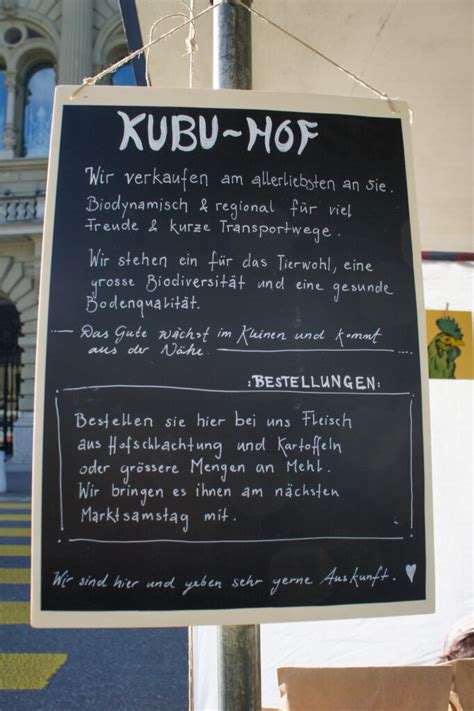 KUBU~HOF
Wir verkaufen am allerliebsten an Sie.
Biodynamisch & regional für viel
Freude & kurze Transportwege.
Wir stehen ein für das Tierwohl, eine
grosse Biodiversität und eine gesunde
Bodenqualität.
Das Gute wächst im Kleinen und kommt
aus der Nähe
:BESTELLUNGEN:
Bestellen sie hier bei uns Fleisch
aus Hofschlachtung und Kartoffeln
oder grössere Mengen an Mehl.
Wir bringen es ihnen am nächsten
Marktsamstag mit.
Wir sind hier und geben sehr gerne Auskunft.